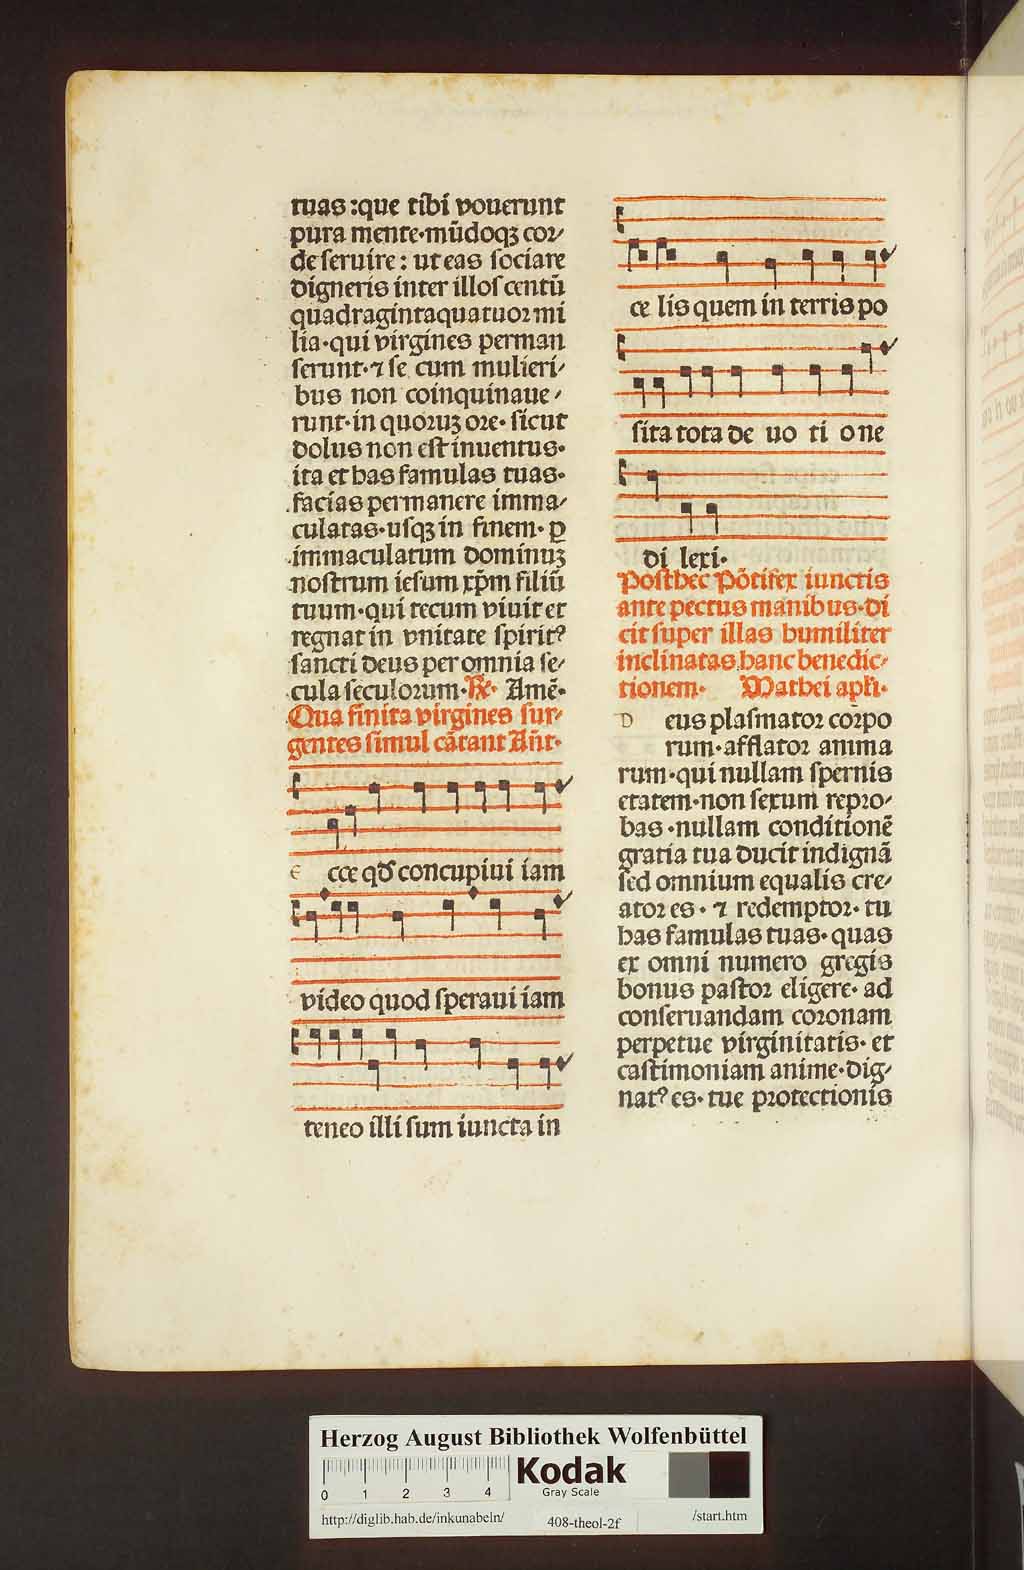 tuas :que tibi vouerunt
pura mente·mūdoqꝫ cor/
de seruire : ut eas sociare
digneris inter illos centū
quadragintaquatuor mi
lia·qui virgines perman
serunt·⁊ se cum mulieri/
bus non coinquinaue/
runt·in quoruꝫ ore· sicut
dolus non est inuentus·
ita et has famulas tuas·
facias permanere imma/
culatas·usqꝫ in finem· ꝑ
immaculatum dominuꝫ
nostrum iesum xp̄m filiū
tuum·qui tecum viuit et
regnat in vnitate spiritꝰ
sancti deus per omnia se/
cula seculorum·℞· Amē·
Qua finita virgines sur/
gentes simul cātant Añt·
e cce qđ concupiui iam
video quod speraui iam
teneo illi sum iuncta in
ce lis quem in terris po
sita tota de uo ti one
di lexi·
Posthec Pōtifex iunctis
ante pectus manibus·di
cit super illas humiliter
inclinatas hanc benedic/
tionem· Mathei apl̄i·
D eus plasmator corpo
rum·afflator anima
rum·qui nullam spernis
etatem·non sexum repro/
bas·nullam conditionē
gratia tua ducit indignā
sed omnium equalis cre/
ator es· ⁊ redemptor· tu
has famulas tuas· quas
ex omni numero gregis
bonus pastor eligere· ad
conseruandam coronam
perpetue virginitatis· et
castimoniam anime·dig/
natꝰ es· tue protectionis
Herzog August Bibliothek Wolfenbüttel
0 1 2 3 4
Kodak
Gray Scale
http://diglib.hab.de/inkunabeln/ 408-theol-2f /start.htm